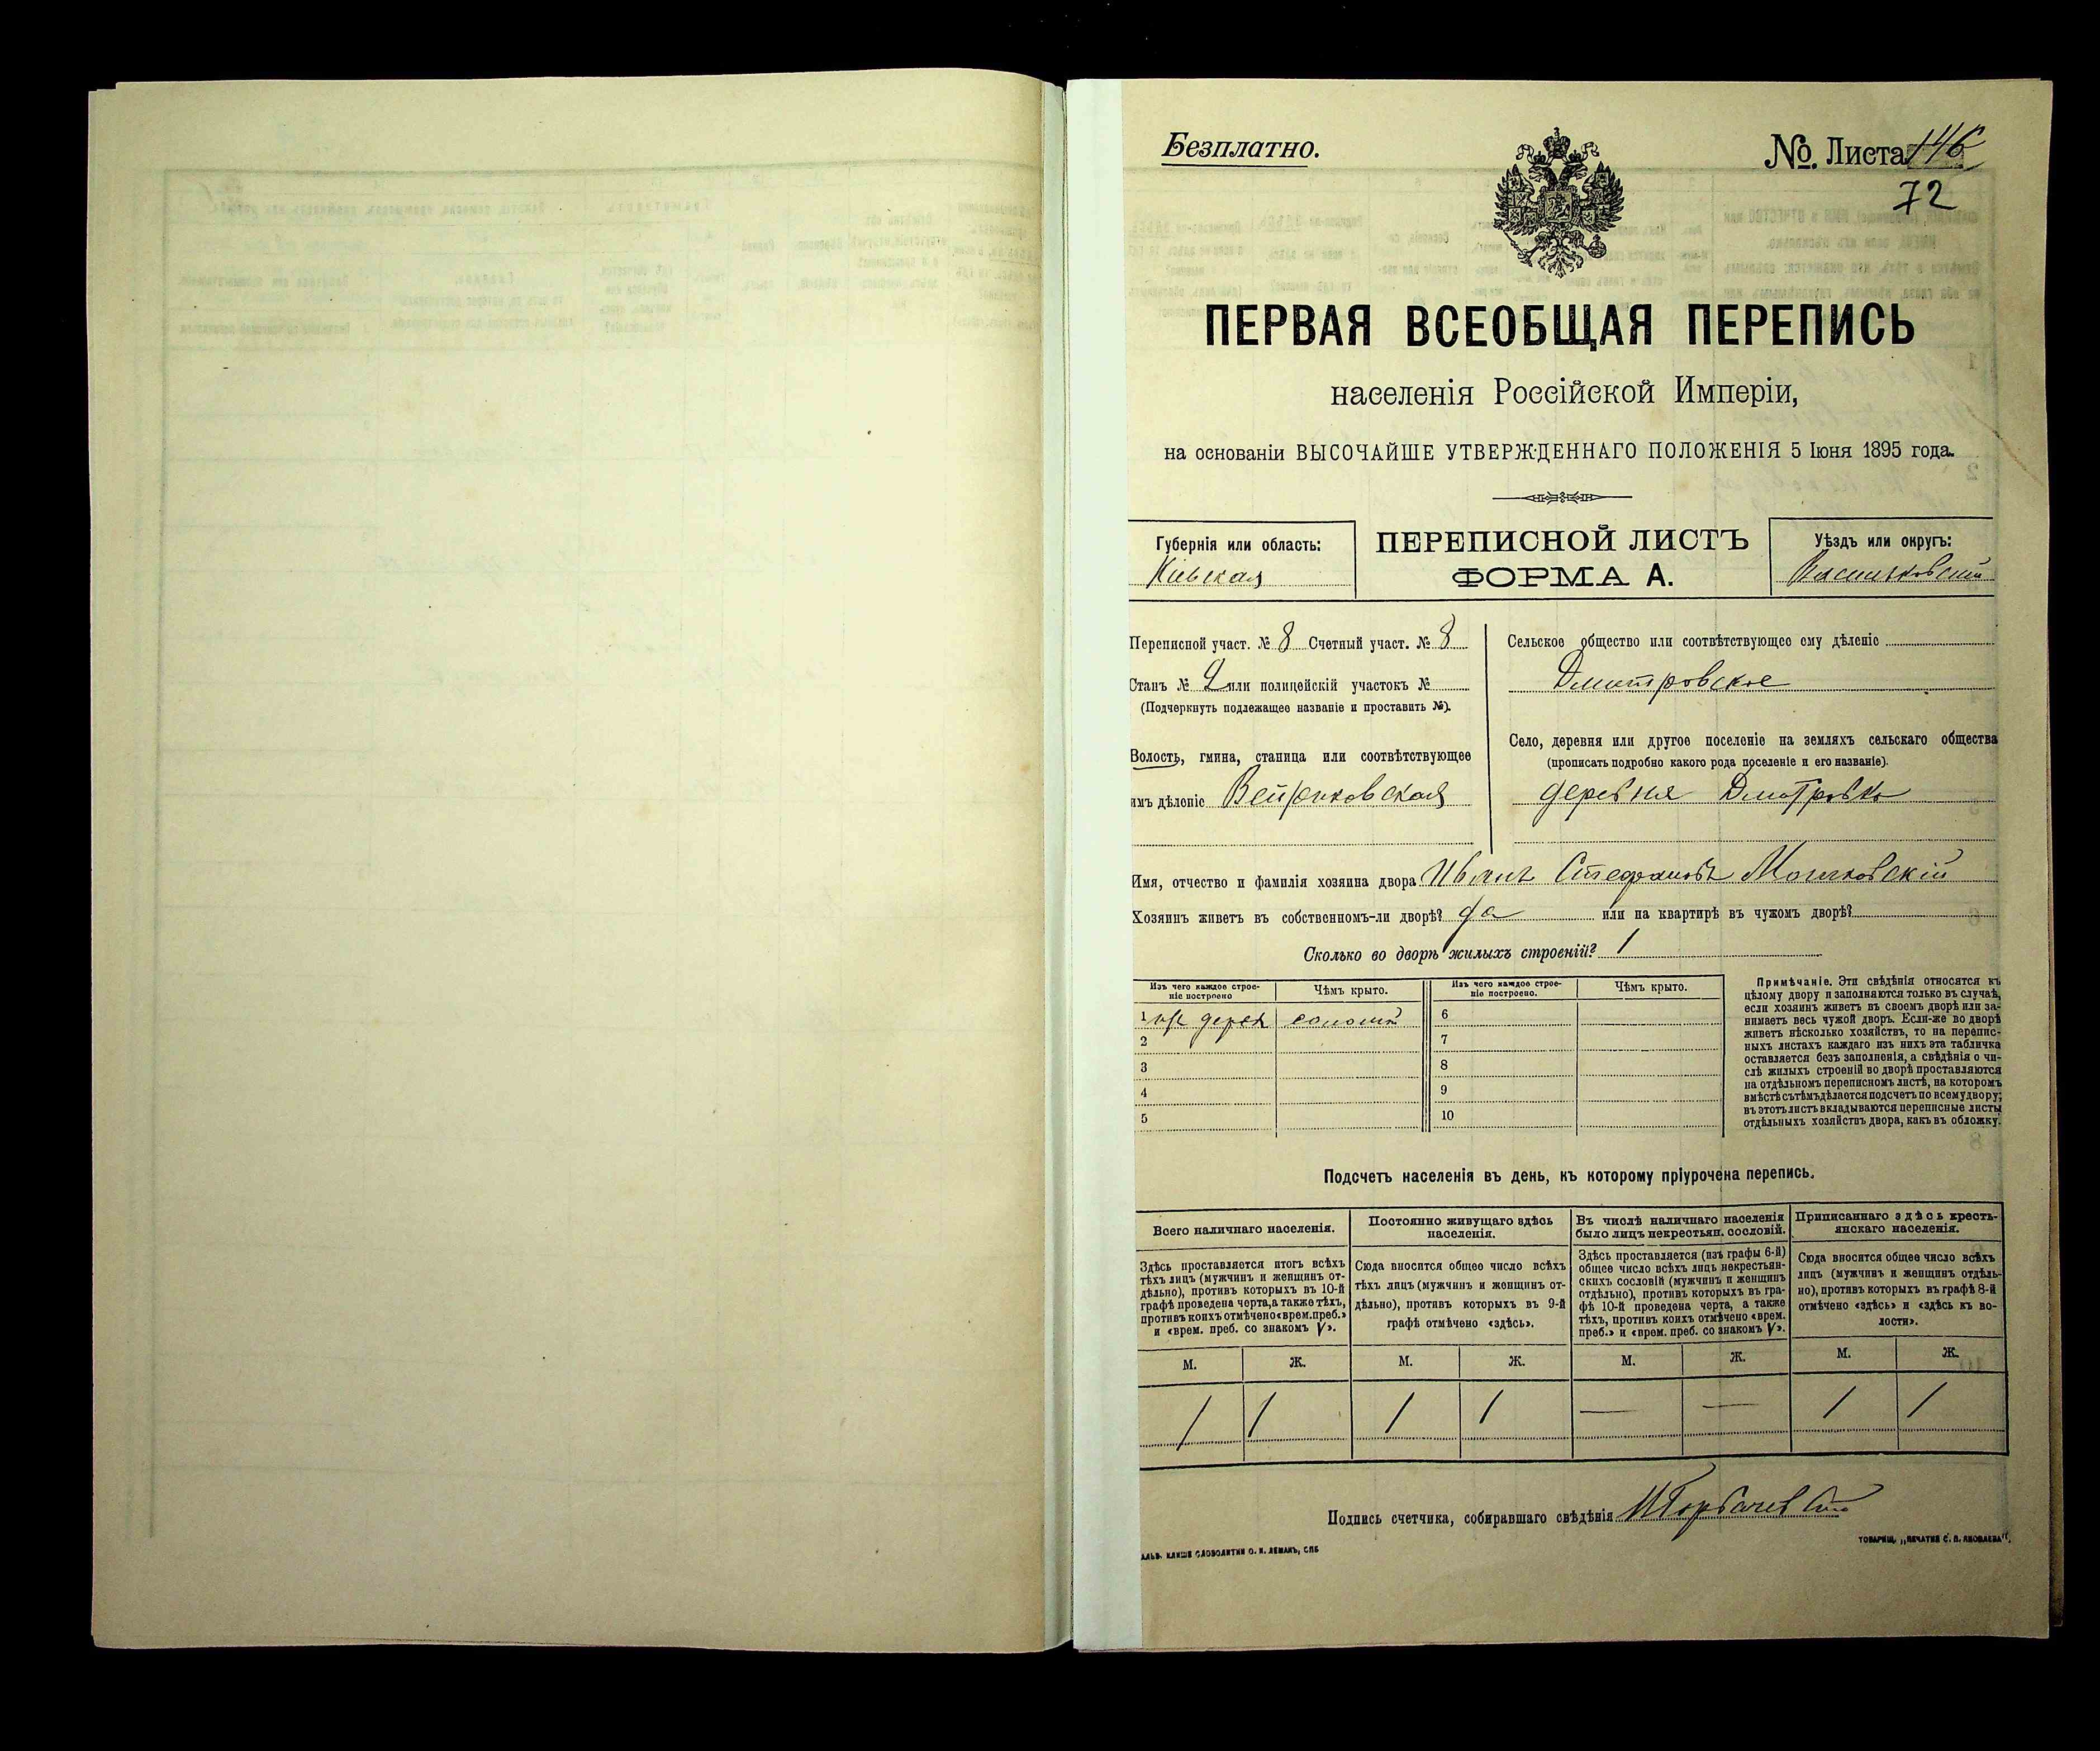 Безплатно.
№ Листа 146
72
ПЕРВАЯ ВСЕОБЩАЯ ПЕРЕПИСЬ
населенія Россійской Имперіи,
на основаніи ВЫСОЧАЙШЕ УТВЕРЖДЕННАГО ПОЛОЖЕНІЯ 5 Іюня 1895 года.
Губернія или область:
Кіевская
ПЕРЕПИСНОЙ ЛИСТЪ
ФОРМА А.
Уѣздъ или округъ:
Васильковскій
Переписной участ. № 8 Счетный участ. № 8
Станъ № 2 или полицейскій участокъ №
(Подчеркнуть подлежащее названіе и проставить №).
Волость, гмина, станица или соотвѣтствующее
имъ дѣленіе
Сельское общество или соотвѣтствующее ему дѣленіе
Дмитровское
Село, деревня или другое поселеніе на земляхъ сельскаго общества
(прописать подробно какого рода поселеніе и его названіе).
деревня Дмитровка
Имя, отчество и фамилія хозяина двора Иванъ Стефановъ
Хозяинъ живетъ въ собственномъ-ли дворѣ? да или на квартирѣ въ чужомъ дворѣ?
Сколько во дворѣ жилыхъ строеній? 1
Изъ чего каждое строе-
ніе построено
Чѣмъ крыто.
Изъ чего каждое строе-
ніе построено.
Чѣмъ крыто.
1 изъ дерев соломой
2
3
4
5
6
7
8
9
10
Примѣчаніе. Эти свѣдѣнія относятся къ
цѣлому двору и заполняются только въ случаѣ,
если хозяинъ живетъ въ своемъ дворѣ или за-
нимаетъ весь чужой дворъ. Если-же во дворѣ
живетъ нѣсколько хозяйствъ, то на перепис-
ныхъ листахъ каждаго изъ нихъ эта табличка
оставляется безъ заполненія, а свѣдѣнія о чи-
слѣ жилыхъ строеній во дворѣ проставляются
на отдѣльномъ переписномъ листѣ, на которомъ
вмѣстѣ съ тѣмъ дѣлается подсчетъ по всему двору;
въ этотъ листъ вкладываются переписные листы
отдѣльныхъ хозяйствъ двора, какъ въ обложку.
Подсчетъ населенія въ день, къ которому пріурочена перепись.
Всего наличнаго населенія.
Постоянно живущаго здѣсь
населенія.
Въ числѣ наличнаго населенія
было лицъ некрестьян. сословій.
Приписаннаго здѣсь кресть-
янскаго населенія.
Здѣсь проставляется итогъ всѣхъ
тѣхъ лицъ (мужчинъ и женщинъ от-
дѣльно), противъ которыхъ въ 10-й
графѣ проведена черта, а также тѣхъ,
противъ коихъ отмѣчено «врем. преб.»
и «врем. преб. со знакомъ V».
Сюда вносится общее число всѣхъ
тѣхъ лицъ (мужчинъ и женщинъ от-
дѣльно), противъ которыхъ въ 9-й
графѣ отмѣчено «здѣсь».
Здѣсь проставляется (изъ графы 6-й)
общее число всѣхъ лицъ некрестьян-
скихъ сословій (мужчинъ и женщинъ
отдѣльно), противъ которыхъ въ гра-
фѣ 10-й проведена черта, а также
тѣхъ, противъ коихъ отмѣчено «врем.
преб.» и «врем. преб. со знакомъ V».
Сюда вносится общее число всѣхъ
лицъ (мужчинъ и женщинъ отдѣль-
но), противъ которыхъ въ графѣ 8-й
отмѣчено «здѣсь» и «здѣсь къ во-
лости».
М. Ж. М. Ж. М. Ж. М. Ж.
1 1 1 1 — — 1 1
Подпись счетчика, собиравшаго свѣдѣнія
ГАЛЬВ. КЛИШЕ СЛОВОЛИТНИ О. И. ЛЕМАНЪ, СПБ
ТОВАРИЩ. „ПЕЧАТНЯ С. П. ЯКОВЛЕВА“.